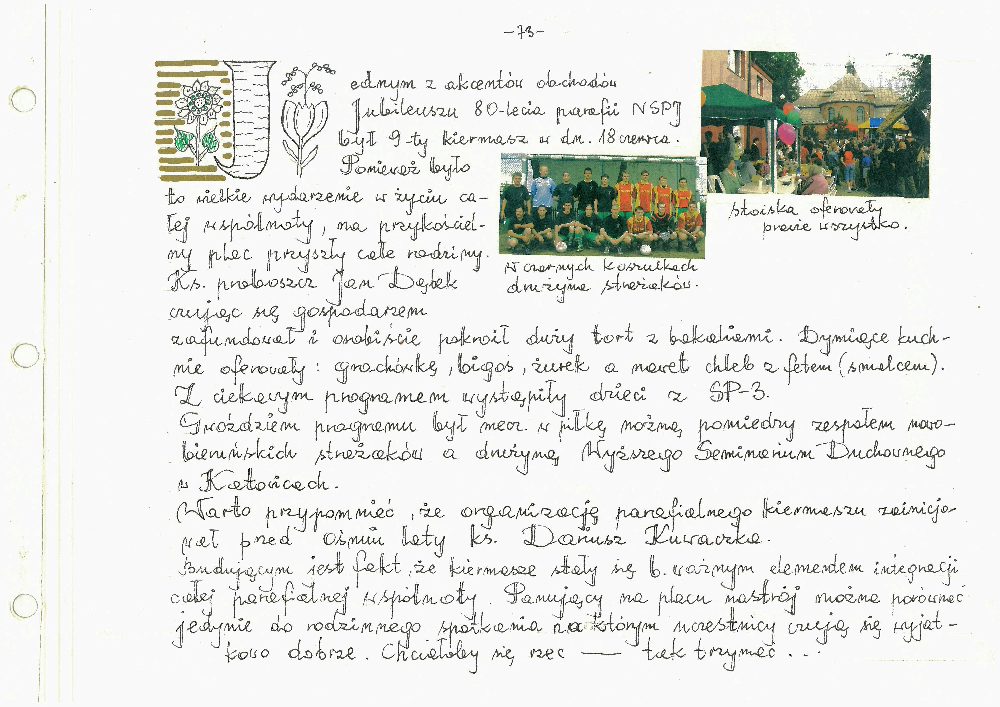 -73-
Jednym z akcentów obchodów
Jubileuszu 80-lecia parafii NSPJ
był 9-ty kiermasz w dn. 18 czerwca.
Ponieważ było
to wielkie wydarzenie w życiu ca-
łej wspólnoty, na przykościel-
ny plac przyszły całe rodziny.
Ks. proboszcz Jan Dębek
czując się gospodarzem
zafundował i osobiście pokroił duży tort z bakaliami. Dymiące kuch-
nie oferowały: grochówkę, bigos, żurek a nawet chleb z fetem (smalcem).
Z ciekawym programem wystąpiły dzieci z SP-3.
Gwoździem programu był mecz w piłkę nożną pomiędzy zespołem nowo-
bieruńskich strażaków a drużyną Wyższego Seminarium Duchownego
w Katowicach.
Warto przypomnieć, że organizację parafialnego kiermaszu zainicjo-
wał przed ośmiu laty ks. Dariusz Kuwaczka.
Budującym jest fakt, że kiermasze stały się b. ważnym elementem integracji
całej parafialnej wspólnoty. Panujący na placu nastrój można porównać
jedynie do rodzinnego spotkania na którym uczestnicy czują się wyjąt-
kowo dobrze. Chciałoby się rzec — tak trzymać...
Stoiska oferowały
prawie wszystko.
W czarnych koszulkach
drużyna strażaków.